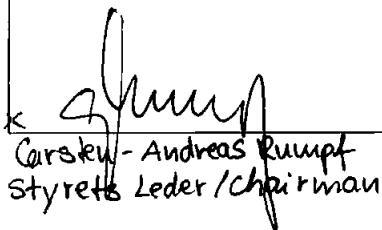 Carsten - Andreas Rumpf
Styrets Leder / Chairman